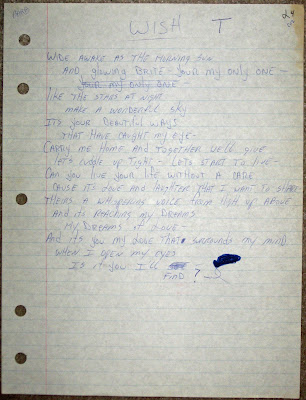 WISH T
WIDE AWAKE AS THE MORNING SUN
AND glowing BRITE - your MY ONLY ONE -
your MY ONLY ONE -
LIKE THE STARS AT NIGHT
MAKE A WONDERFUL SKY
ITS YOUR BEAUTIFUL WAYS
THAT HAVE CAUGHT MY EYE -
CARRY ME HOME AND TOGETHER WE'LL GIVE
LET'S CUDDLE UP TIGHT - LETS START TO LIVE -
CAN YOU LIVE YOUR LIFE WITHOUT A CARE
CAUSE ITS LOVE AND LAUGHTER THAT I WANT TO SHARE
THERES A WHISPERING VOICE FROM HIGH UP ABOVE
AND ITS REACHING MY DREAMS
MY DREAMS OF LOVE -
AND ITS YOU MY LOVE THAT SURROUNDS MY MIND
WHEN I OPEN MY EYES
IS IT YOU I'LL
FIND ?